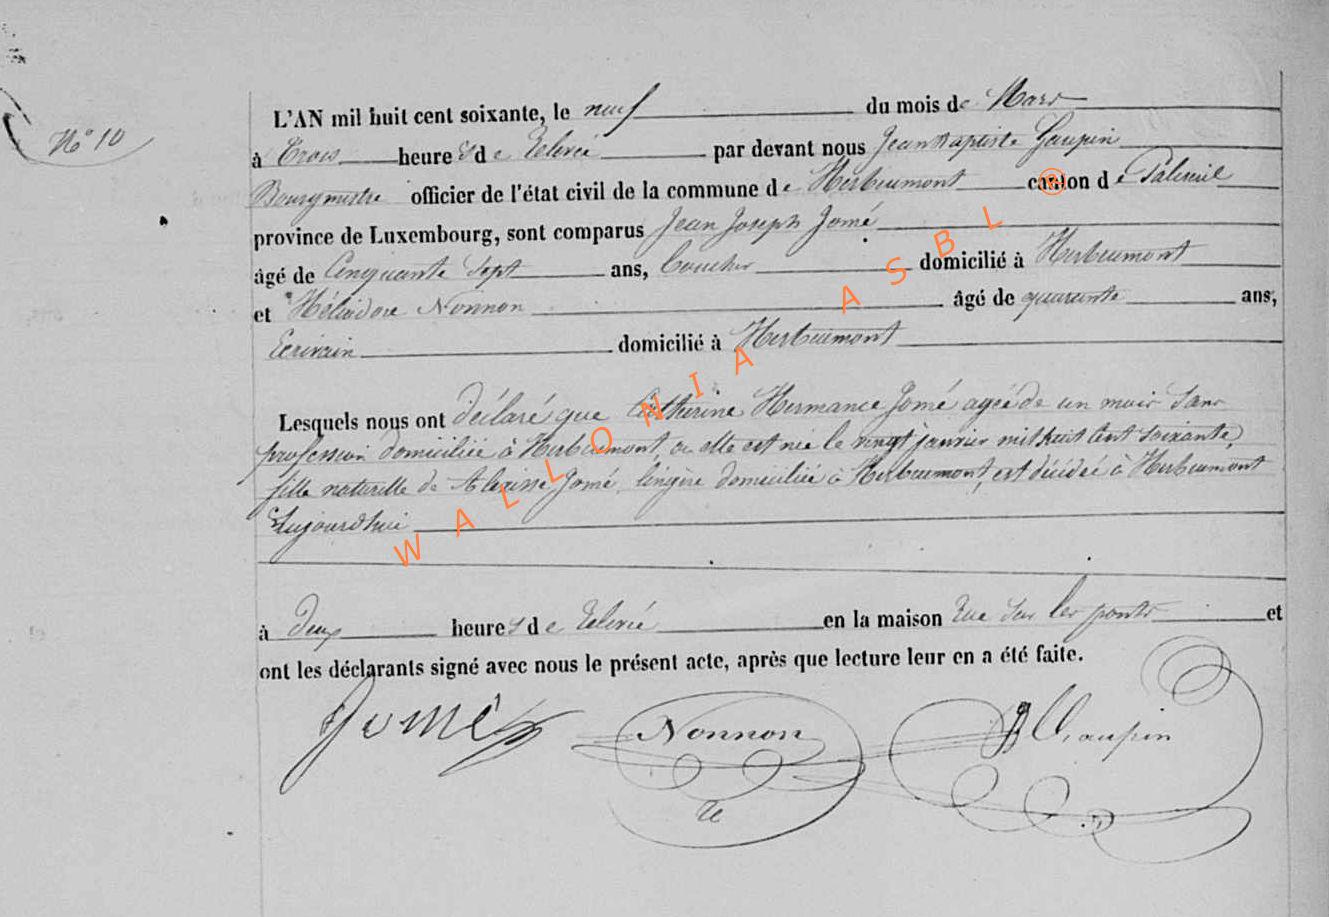 N° 10
L'AN mil huit cent soixante, le neuf du mois de Mars
à Trois heures de Relevée par devant nous Jean Baptiste Gaupin
Bourgmestre officier de l'état civil de la commune de Herbeumont canton de Paliseul
province de Luxembourg, sont comparus Jean Joseph Jomé
âgé de Cinquante Sept ans, domicilié à Herbeumont
et Héliodore Nonnon âgé de quarante ans,
Ecrivain domicilié à Herbeumont
Lesquels nous ont déclaré que Catherine Hermance Jomé agée de un mois Sans
profession domiciliée à Herbeumont, ou elle est née le vingt janvier mil huit Cent Soixante,
fille naturelle de Jomé, lingère domiciliée à Herbeumont, est décédée à Herbeumont
Aujourd'hui
à Deux heures de Relevée en la maison Rue Sur les ponts et
ont les déclarants signé avec nous le présent acte, après que lecture leur en a été faite.
Jomé Nonnon Gaupin
WALLONIA ASBL ®